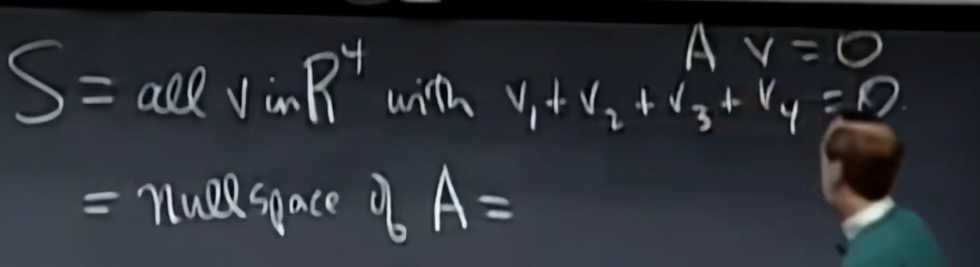 A v = 0
S = all v in R⁴ with v₁ + v₂ + v₃ + v₄ = 0
= nullspace of A =